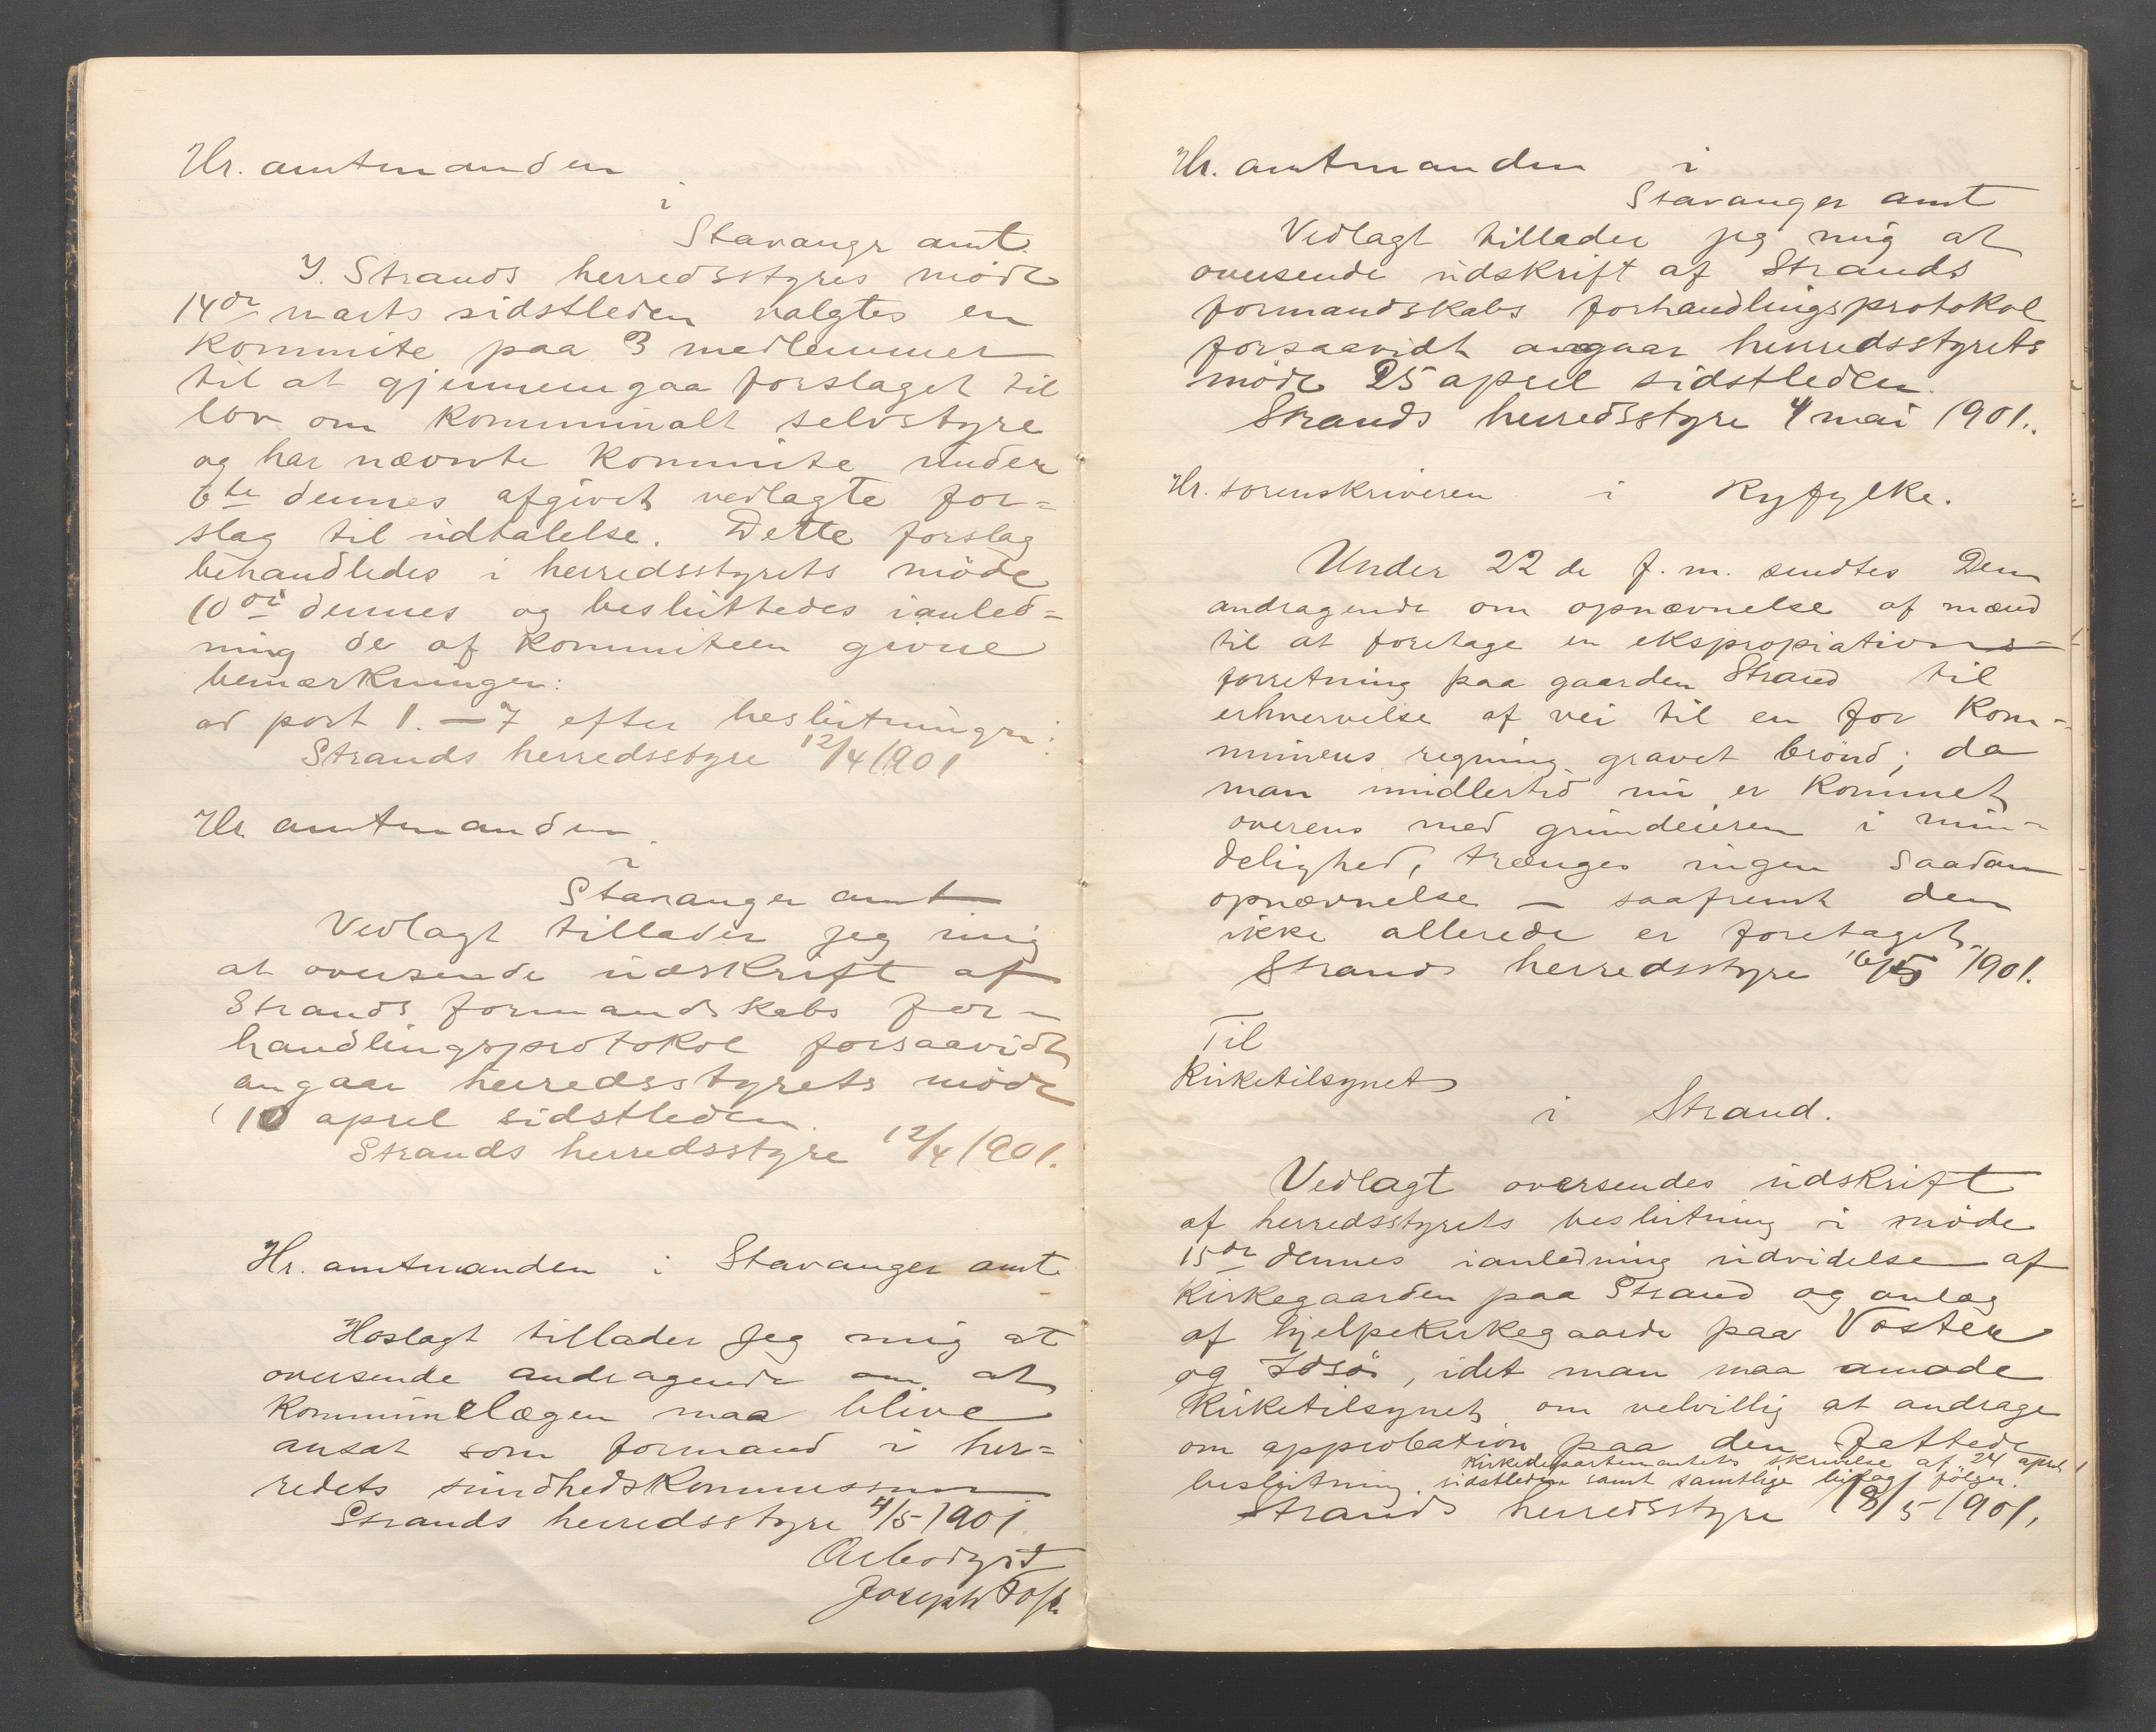 Hr. amtmanden
i
Stavangr amt.
I Strands herredsstyres møde
14de marts sidstleden valgtes en
kommite paa 3 medlemmer
til at gjennemgaa forslaget til
lov om kommunalt selvstyre
og har nævnte kommite under
6te dennes afgivet vedlagte for=
slag til udtalelse. Dette forslag
behandledes i herredsstyrets møde
10de dennes og besluttedes ianled=
ning de af kommiteen givne
bemærkninger:
ad post 1.-7 efter beslutningen:
Strands herredsstyre 12/4 1901
Hr amtmanden
i
Stavanger amt
Vedlagt tillader jeg mig
at oversende udskrift af
Strands formandskabs for-
handlingsprotokol forsaavidt
angaar herredsstyrets møde
10 april sidstleden.
Strands herredsstyre 12/4 1901.
Hr. amtmanden i Stavanger amt.
Hoslagt tillader jeg mig at
oversende andragende om at
kommunelægen maa blive
ansat som formand i her=
redets sundhedskommission
Strands herredsstyre 4/5 1901.
Ærbødigst
Joseph
Hr. amtmanden i
Stavanger amt
Vedlagt tillader jeg mig at
oversende udskrift af Strands
formandskabs forhandlingsprotokol
forsaavidt angaar herredsstyrets
møde 25 april sidstleden.
Strands herredsstyre 4 mai 1901.
Hr. sorenskriveren i Ryfylke.
Under 22 de f. m. sendtes Dem
andragende om opnævnelse af mænd
til at foretage en ekspropiations-
forretning paa gaarden Strand til
erhvervelse af vei til en for kom-
munens regning gravet brønd; da
man imidlertid nu er kommet
overens med grundeieren i min-
delighed, trænges ingen saadan
opnævnelse - saafremt den
ikke allerede er foretaget.
Strands herredsstyre 16/5 1901.
Til
Kirketilsynet
i Strand.
Vedlagt oversendes udskrift
af herredsstyrets beslutning i møde
15de dennes ianledning udvidelse af
kirkegaarden paa Strand og anlæg
af hjelpekirkegaarde paa Vostere
og Idsø, idet man maa anmode
kirketilsynet om velvillig at andrage
om approbation paa den fattede
kirkedepartementets skrivelse af 24 april
beslutning. sidstleden samt samtlige bilag følger.
Strands herredsstyre 18/5 1901.